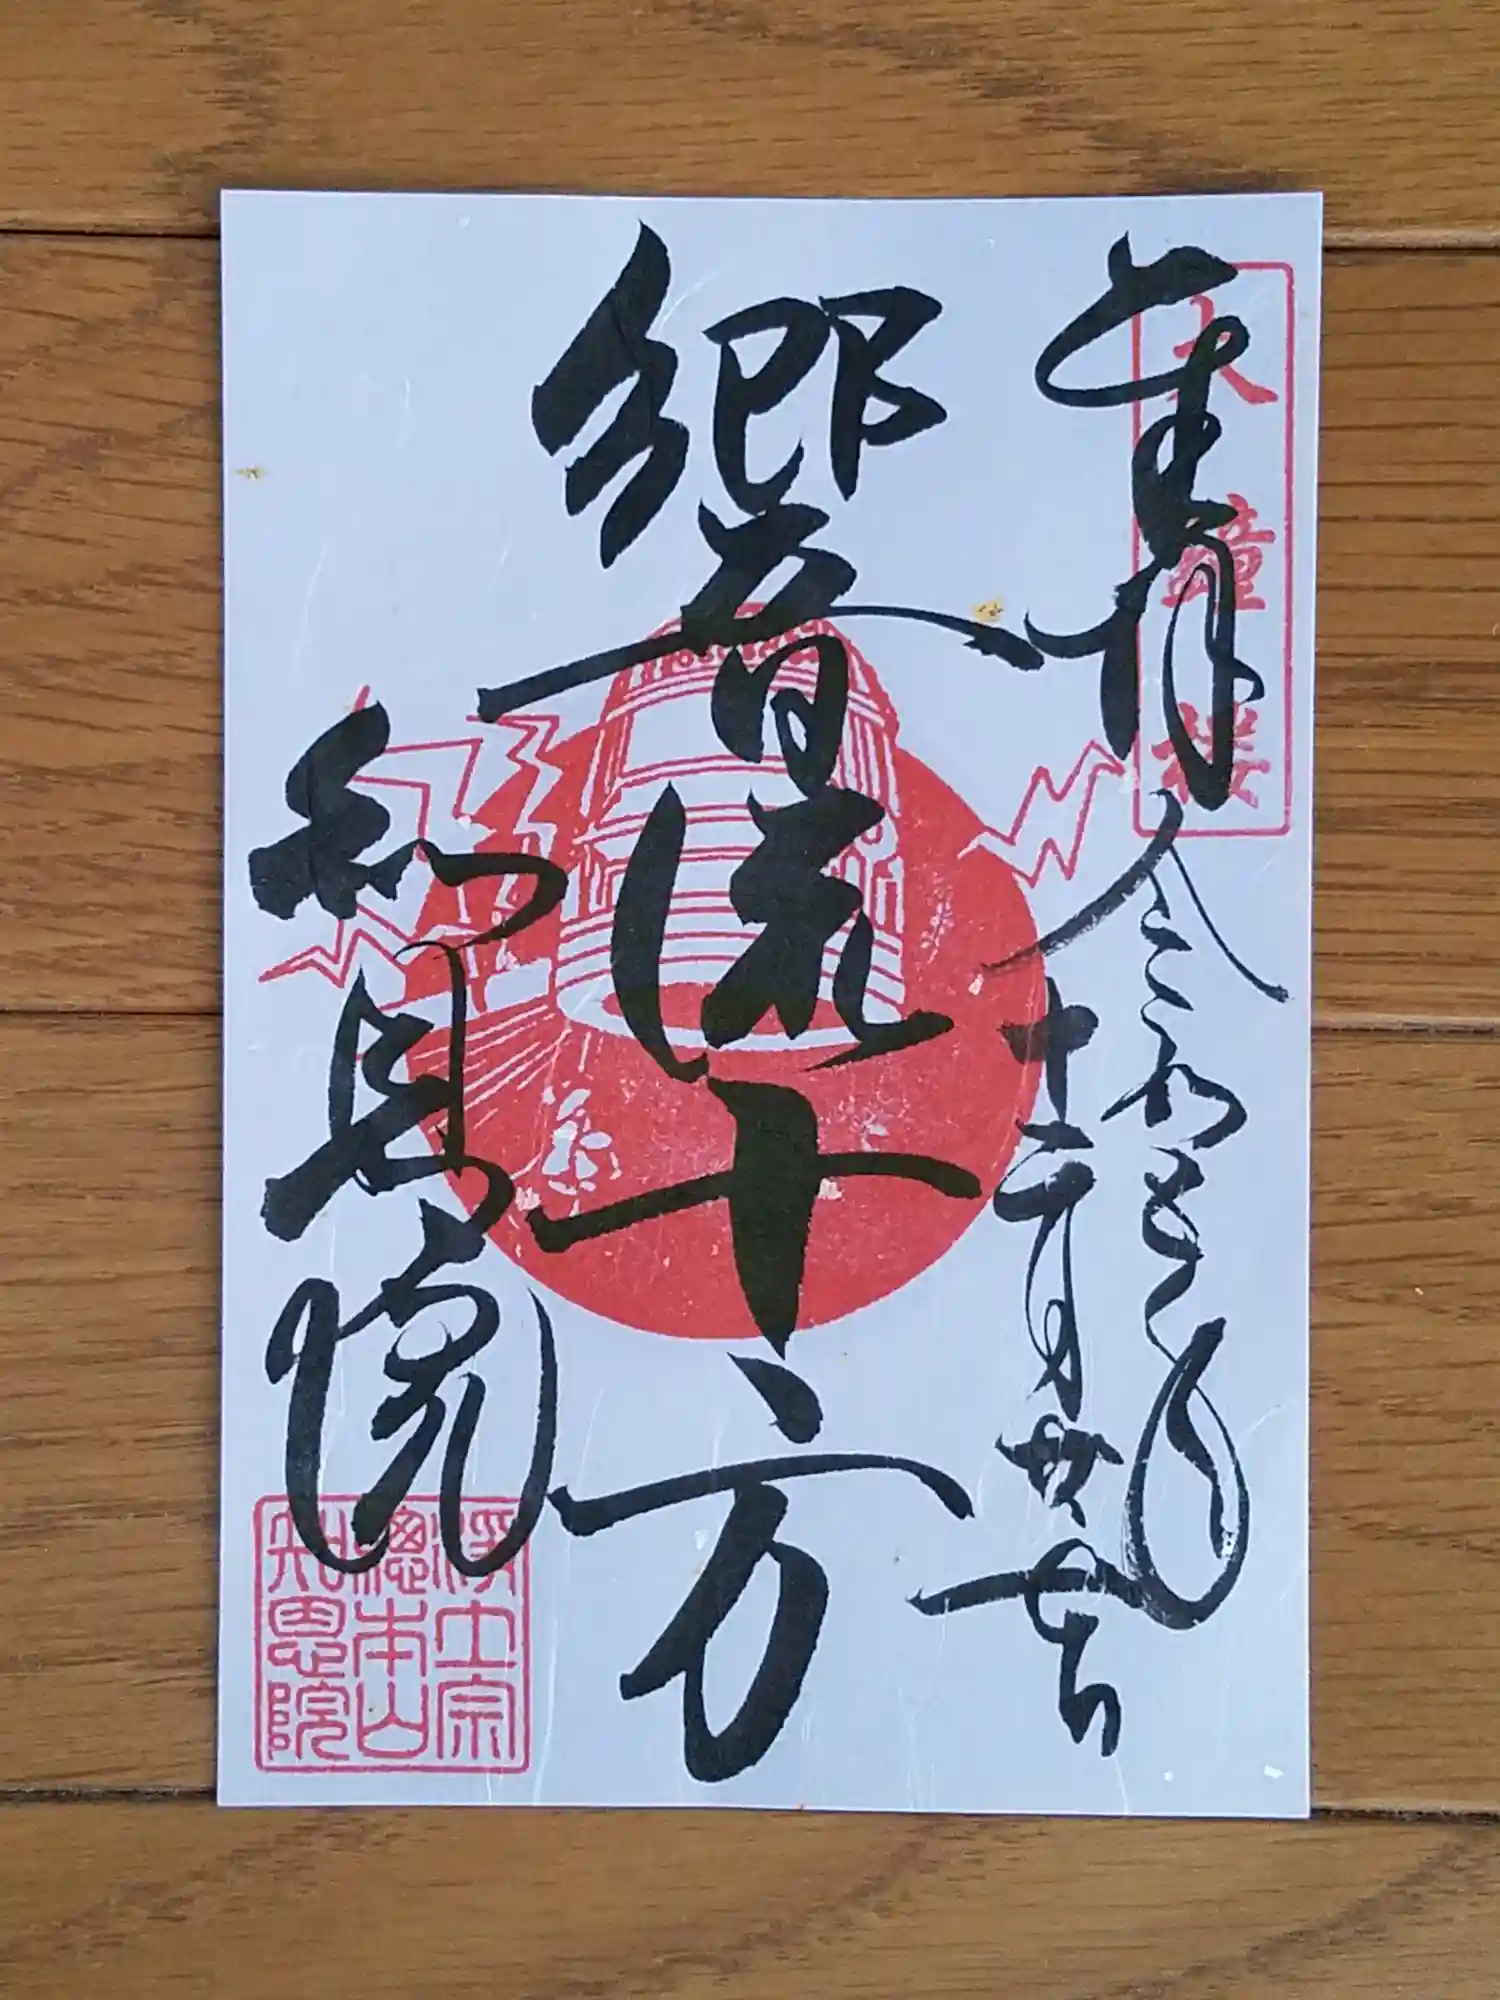 奉拝
大鐘楼
令和五年
十二月
響流十方
知恩院
浄土宗
總本山
知恩院